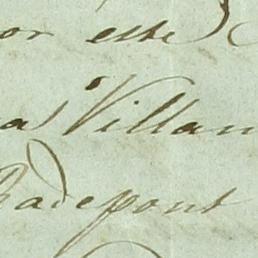 or este
a Villan
Radepont